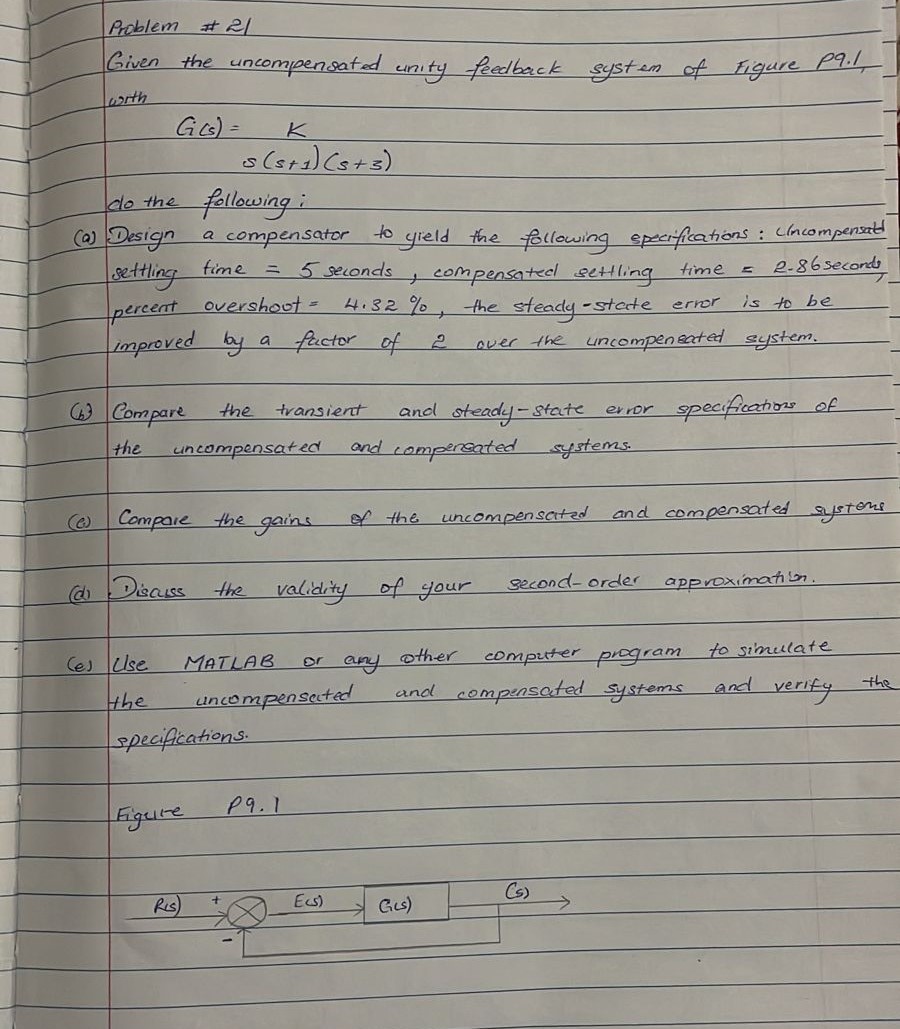 Problem # 21
Given the uncompensated unity feedback system of Figure P9.1,
with
G(s) = K
s(s+1)(s+3)
do the following:
(a) Design a compensator to yield the following specifications: Uncompensated
settling time = 5 seconds, compensated settling time = 2.86 seconds,
percent overshoot = 4.32 %, the steady-state error is to be
improved by a factor of 2 over the uncompensated system.
(b) Compare the transient and steady-state error specifications of
the uncompensated and compensated systems.
(c) Compare the gains of the uncompensated and compensated systems
(d) Discuss the validity of your second-order approximation.
(e) Use MATLAB or any other computer program to simulate
the uncompensated and compensated systems and verify the
specifications.
Figure P9.1
R(s) + E(s) G(s) C(s)
-